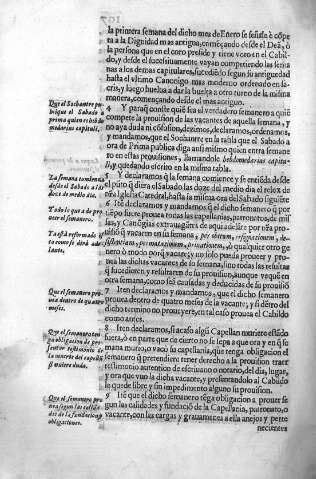 la primera semana del dicho mes de Enero se señale ò cõpe
ta a la Dignidad mas antigua, començando desde el Deã, ò
la persona que en el coro preside y tiene voto en el Cabil-
do, y desde el sucesiuamente vayan compitiendo las sema
nas a los demas capitulares, sucediendo segun su antiguedad
hasta el vltimo Canonigo mas moderno ordenado in sa-
cris, y luego buelua a dar la buelta a otro turno de la misma
manera, començando desde el mas antiguo.
Que el Sochantre pu
blique el Sabado à
prima quien es el heb
domadario capitul.
4 Y paraq̃ conste qual será el verdadero semanero a quiẽ
compete la prouision de las vacantes de aquella semana, y
no aya duda ni cõfusion, dezimos, declaramos, ordenamos,
y mandamos, que el Sochantre en la tabla que el Sabado a
ora de Prima publica diga assimismo quien entra semane
ro en estas prouisiones, llamandole hebdomadarius capitu-
laris, quedando escrito en la misma tabla.
La semana comience
desde el Sabado a las
doze de medio dia.
5 Y declaramos q̃ la semana comience y se entiẽda desde
el pũto q̃ diera el Sabado las doze del medio dia el relox de
nra Iglesia Catedral, hasta la misma ora del Sabado siguiẽte
Todo lo que a de pro
ueer el semanero.
6 Itẽ declaramos y mandamos q̃ el dicho semanero q̃ por
tiẽpo fuere prouea todas las capellanias, patronatos, de mis
sas, y Canõgias extrauagãtes de aqui adelãte por nr̃a prouisi
Ta està reformado es
ta como se dirà ade
lante.
õ q̃ vacarẽ en su semana, per obitum, resignationem, de-
sistentiam, permutationem, priuationem, ò qualquier otro gene
ro ò modo porq̃ vacarẽ; y no solo pueda proueer y proue
ea las dichas vacantes de su semana, sino todas las resultas
q̃ sucedieren y resultaren de su prouision, aunque vaquẽ en
otra semana, como seã causadas y deducidas de su prouisiõ
Que el semanero pro
uea dentro de quatro
meses.
7 Iten declaramos y mandamos, que el dicho semanero
prouea dentro de quatro meses de la vacante, y si dẽtro del
dicho termino no proueyere, en tal caso prouea el Cabildo
como antes.
Que el semanero ten
ga obligacion de pre
sentar testimonio de
la muerte del capellã
si quiere dudo.
8 Iten declaramos, si acaso algũ Capellan muriere estãdo
fuera, ò en parte que de cierto no se sepa a que ora y en q̃ se
mana murio, o vacò su capellania, que tenga obligacion el
semanero q̃ pretendiere tener derecho a la prouision traer
testimonio autentico de escriuano o notario, del dia, lugar,
y ora que vuo la dicha vacante, y presentandolo al Cabildo
le quede libre y sin impedimento alguno su prouision.
Que el semanero pro
uea segun las calida-
des de la fundaciõ y
obligaciones.
9 Itẽ que el dicho semanero tẽga obligaciõ a proueer se
gun las calidades y fundaciõ de la Capellania, patronato, o
vacante, con las cargas y grauamenes a ella anejos y perte
necientes